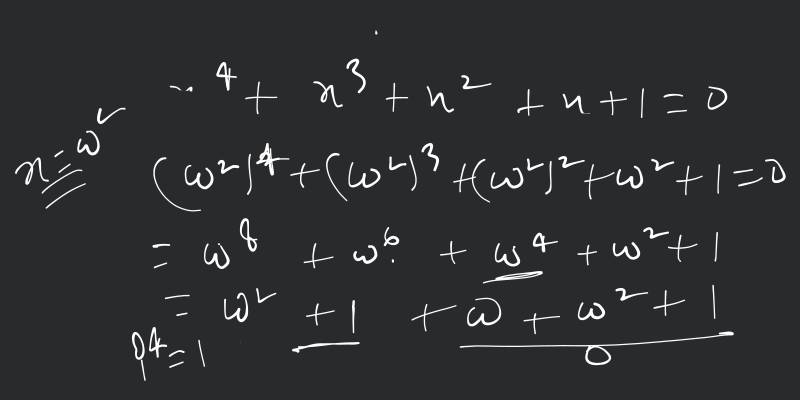 x⁴ + x³ + x² + x + 1 = 0
x = ω²
(ω²)⁴ + (ω²)³ + (ω²)² + ω² + 1 = 0
= ω⁸ + ω⁶ + ω⁴ + ω² + 1
= ω² + 1 + ω + ω² + 1
0